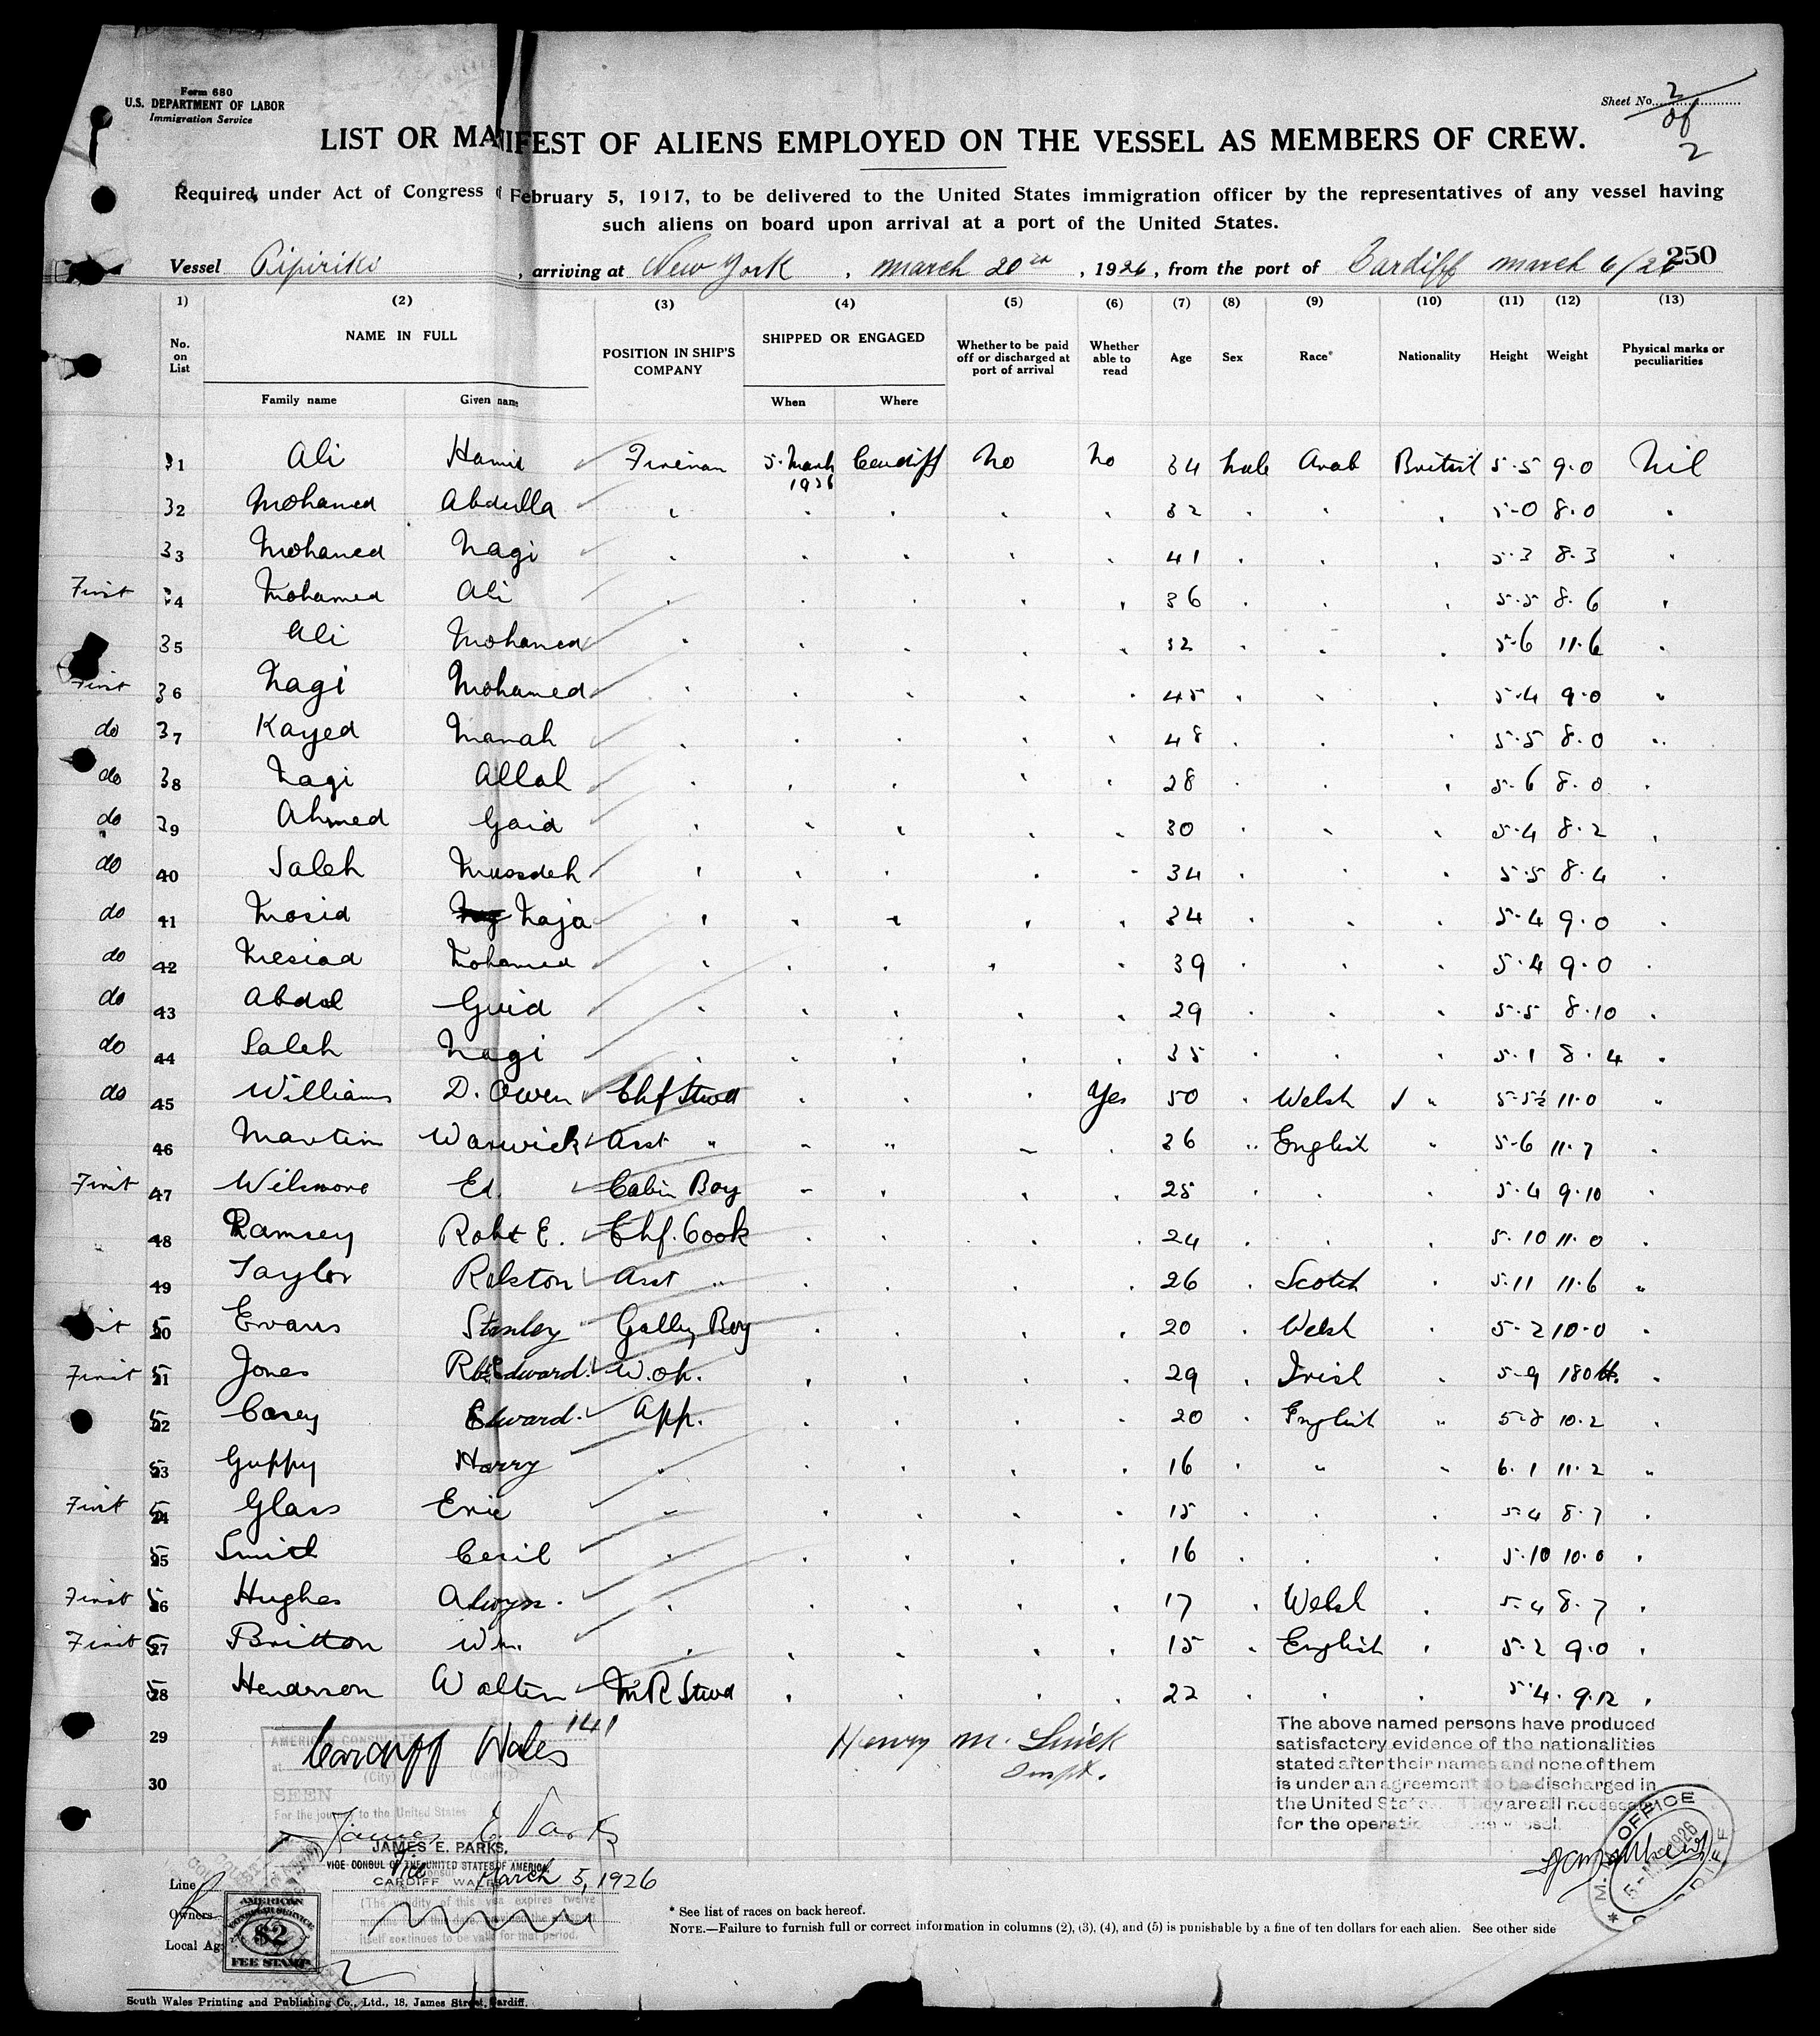 Form 680
U.S. DEPARTMENT OF LABOR
Immigration Service
Sheet No. 2 of 2
LIST OR MANIFEST OF ALIENS EMPLOYED ON THE VESSEL AS MEMBERS OF CREW.
Required under Act of Congress February 5, 1917, to be delivered to the United States immigration officer by the representatives of any vessel having
such aliens on board upon arrival at a port of the United States.
Vessel Pipiriki, arriving at New York, March 20th, 1926, from the port of Cardiff March 6/26 250
(1) (2) (3) (4) (5) (6) (7) (8) (9) (10) (11) (12) (13)
No. on List NAME IN FULL Family name Given name POSITION IN SHIP'S COMPANY SHIPPED OR ENGAGED When Where Whether to be paid off or discharged at port of arrival Whether able to read Age Sex Race* Nationality Height Weight Physical marks or peculiarities
31 Ali Hamid Fireman 5. March 1926 Cardiff No No 34 Male Arab British 5.5 9.0 Nil
32 Mohamed Abdulla " " " " " 32 " " " 5-0 8.0 "
33 Mohamed Nagi " " " " " 41 " " " 5.3 8.3 "
First 34 Mohamed Ali " " " " " 36 " " " 5.5 8.6 "
35 Ali Mohamed " " " " " 32 " " " 5-6 11.6 "
First 36 Nagi Mohamed " " " " " 45 " " " 5.4 9.0 "
do 37 Kayed Manah " " " " " 48 " " " 5.5 8.0 "
do 38 Nagi Allah " " " " " 28 " " " 5.6 8.0 "
do 39 Ahmed Gaid " " " " " 30 " " " 5.4 8.2 "
do 40 Saleh Mussdeh " " " " " 34 " " " 5.5 8.4 "
do 41 Mosid Naja " " " " " 34 " " " 5.4 9.0 "
do 42 Mesiad Mohamed " " " " " 39 " " " 5.4 9.0 "
do 43 Abdul Guid " " " " " 29 " " " 5.5 8.10 "
do 44 Saleh Nagi " " " " " 35 " " " 5.1 8.4 "
do 45 Williams D. Owen Chf Stwd " " " Yes 50 " Welsh " 5-5½ 11.0 "
46 Martin Warwick Asst " " " " " 36 " English " 5-6 11.7 "
First 47 Wilsmore Ed. Cabin Boy " " " " 25 " " " 5.4 9.10 "
48 Ramsey Robt E. Chf. Cook " " " " 24 " " " 5.10 11.0 "
49 Taylor Ralston Asst " " " " " 26 " Scotch " 5.11 11.6 "
50 Evans Stanley Galley Boy " " " " 20 " Welsh " 5-2 10-0 "
First 51 Jones Rbt Edward. W. op. " " " " 29 " Irish " 5-9 180 lb. "
52 Casey Edward. App. " " " " 20 " English " 5-8 10.2 "
53 Guppy Harry " " " " " 16 " " " 6.1 11.2 "
First 54 Glass Eric " " " " " 15 " " " 5.4 8.7 "
55 Smith Cecil " " " " " 16 " " " 5.10 10.0 "
First 56 Hughes Alwyn. " " " " " 17 " Welsh " 5.4 8.7 "
First 57 Britton Wm. " " " " " 15 " English " 5.2 9.0 "
58 Henderson Walter M R Stwd " " " " 22 " " " 5.4. 9.12 "
29 141
30
AMERICAN CONSULATE
at Cardiff Wales
(City) (Country)
SEEN
For the journey to the United States
James E Parks
JAMES E. PARKS,
VICE CONSUL OF THE UNITED STATES OF AMERICA
CARDIFF WALES
March 5, 1926
(The validity of this visa expires twelve
itself continues to be valid for that period.
Henry M.
Inspt.
The above named persons have produced
satisfactory evidence of the nationalities
stated after their names and none of them
is under an agreement to be discharged in
the United States. They are all necessary
for the operation of the vessel.
M. M. OFFICE CARDIFF 5-MAR 1926
Line
Owners
Local Ag
AMERICAN
CONSULAR SERVICE
$2
FEE STAMP
* See list of races on back hereof.
NOTE.—Failure to furnish full or correct information in columns (2), (3), (4), and (5) is punishable by a fine of ten dollars for each alien. See other side
South Wales Printing and Publishing Co., Ltd., 18, James Street, Cardiff.